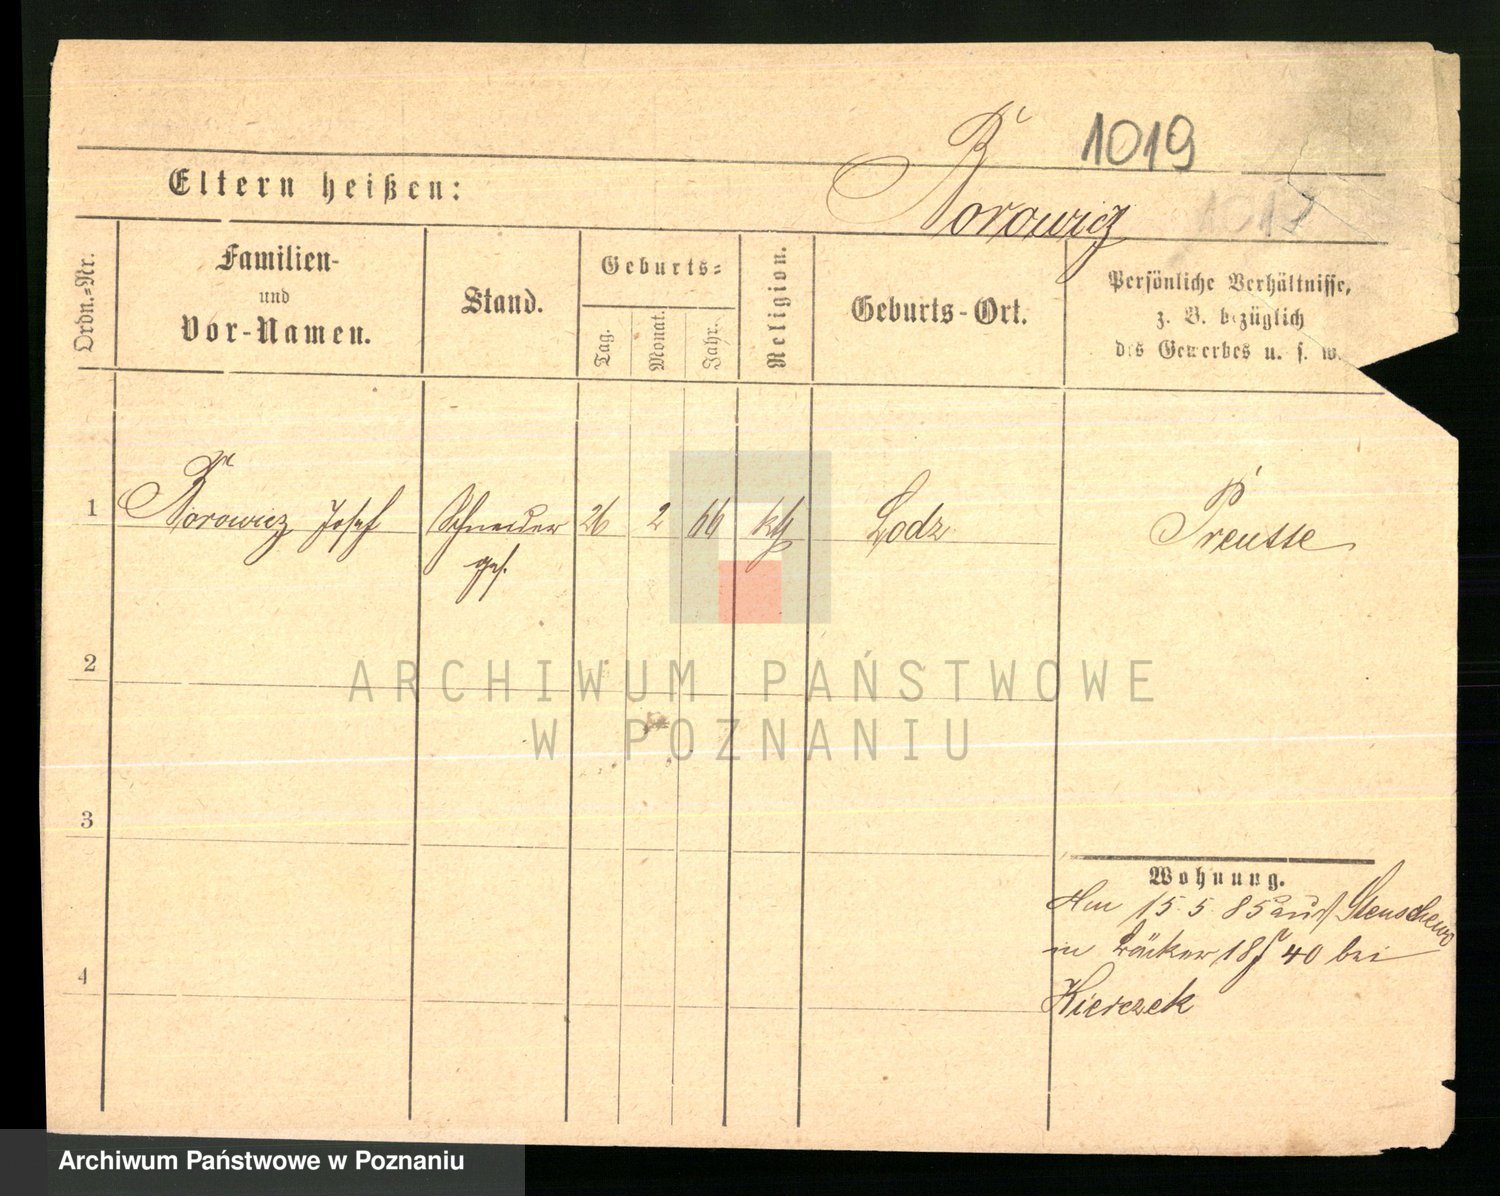 1019
1017
Borowicz
Eltern heißen:
Ordn.-Nr.
Familien-
und
Vor-Namen.
Stand.
Geburts-
Tag.
Monat.
Jahr.
Religion.
Geburts-Ort.
Persönliche Verhältnisse,
z. B. bezüglich
des Gewerbes u. s. w.
1 Borowicz Josef Schneider 26 2 66 kth Lodz Preusse
ges.
2
3
4
Wohnung.
Am 15.5.85 aus Stenschewo
in Bäcker 18/40 bei
Kierczek
ARCHIWUM PAŃSTWOWE
W POZNANIU
Archiwum Państwowe w Poznaniu